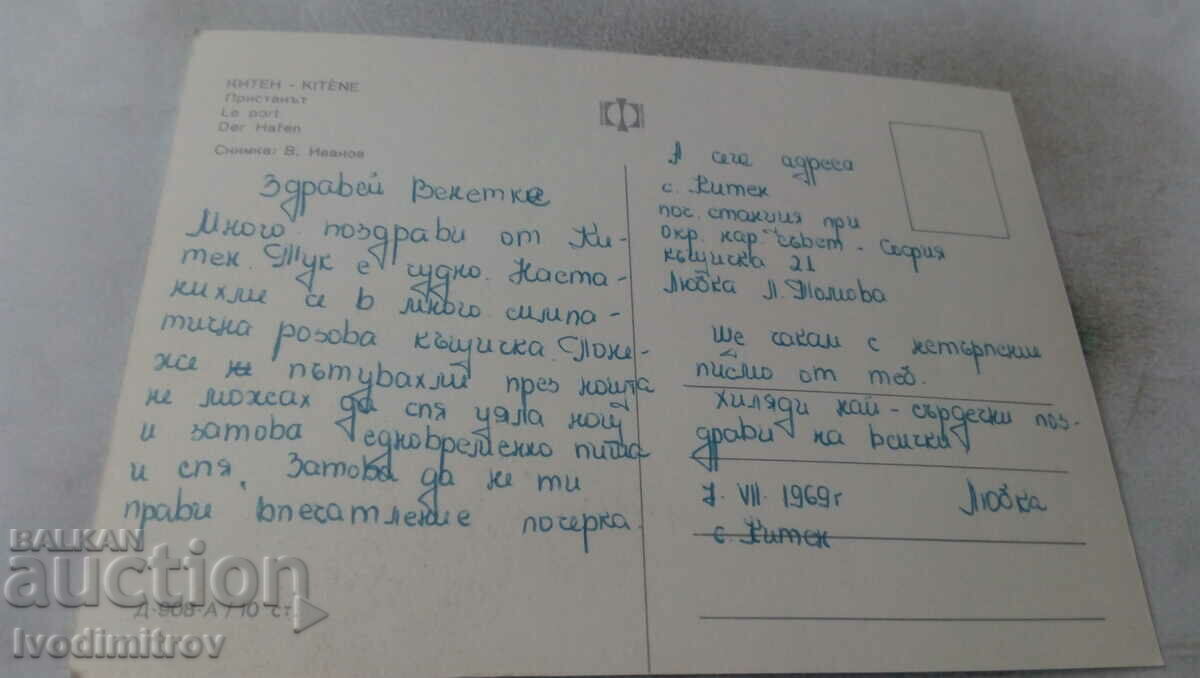 КИТЕН - KITÈNE
Пристанът
Le port
Der Hafen
Снимка: В. Иванов
Здравей Венетке
Много поздрави от Ки-
тен. Тук е чудно. Наста-
нихме се в много симпа-
тична розова къщичка. Поне-
же пътувахме през нощта
не можах да спя цяла нощ
и затова едновременно пиша
и спя. Затова да не ти
прави впечатление почерка.
А сега адреса
с. Китен
поч. станция при
окр. нар. съвет - София
къщичка 21
Любка Л. Томова
Ще чакам с нетърпение
писмо от теб.
Хиляди най-сърдечни поз-
драви на всички
7. VII. 1969 г Любка
с. Китен
Д-908-А / 10 ст.
BALKAN
auction
Ivodimitrov